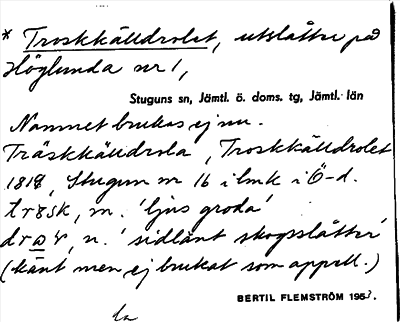 * Troskkälldrolet, utslåtter på
Höglunda nr 1,
Stuguns sn, Jämtl. ö. doms. tg, Jämtl. län
Namnet brukas ej nu.
Träskkälldrola, Troskkälldrolet
1818, Stugun nr 16 i lmk i Ö-d.
trɤsk, m. 'ljus groda'
n. 'sidlänt skogsslåtter'
(känt men ej brukat som appell.)
BERTIL FLEMSTRÖM 1953.